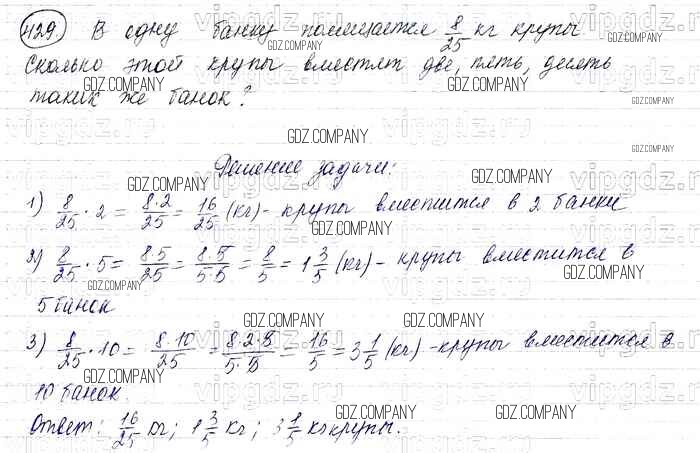 429. В одну банку помещается 8/25 кг крупы
Сколько этой крупы вместят две, пять, десять
таких же банок?
Решение задачи:
1) 8/25 · 2 = 8·2/25 = 16/25 (кг) - крупы вместится в 2 банки
2) 8/25 · 5 = 8·5/25 = 8·5/5·5 = 8/5 = 1 3/5 (кг) - крупы вместится в
5 банок
3) 8/25 · 10 = 8·10/25 = 8·2·5/5·5 = 16/5 = 3 1/5 (кг) - крупы вместится в
10 банок.
Ответ: 16/25 кг; 1 3/5 кг; 3 1/5 кг крупы.
GDZ.COMPANY
vipgdz.ru